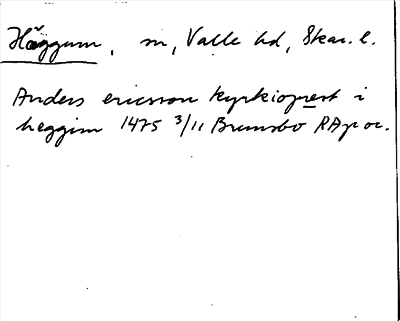 Häggum, sn, Valle hd, Skar. l.
Anders ericsson kyrkioprest i
heggim 1475 3/11 Brumsbo RAp or.